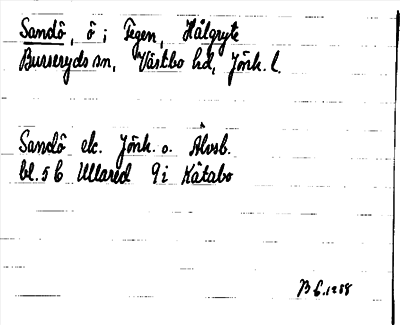 Sandö, ö i Fegen, Hålgryte
Burseryds sn, Västbo hd, Jönk. l.
Sandö ek. Jönk. o. Älvsb.
bl. 5 b Ullared 9 i Kåtabo